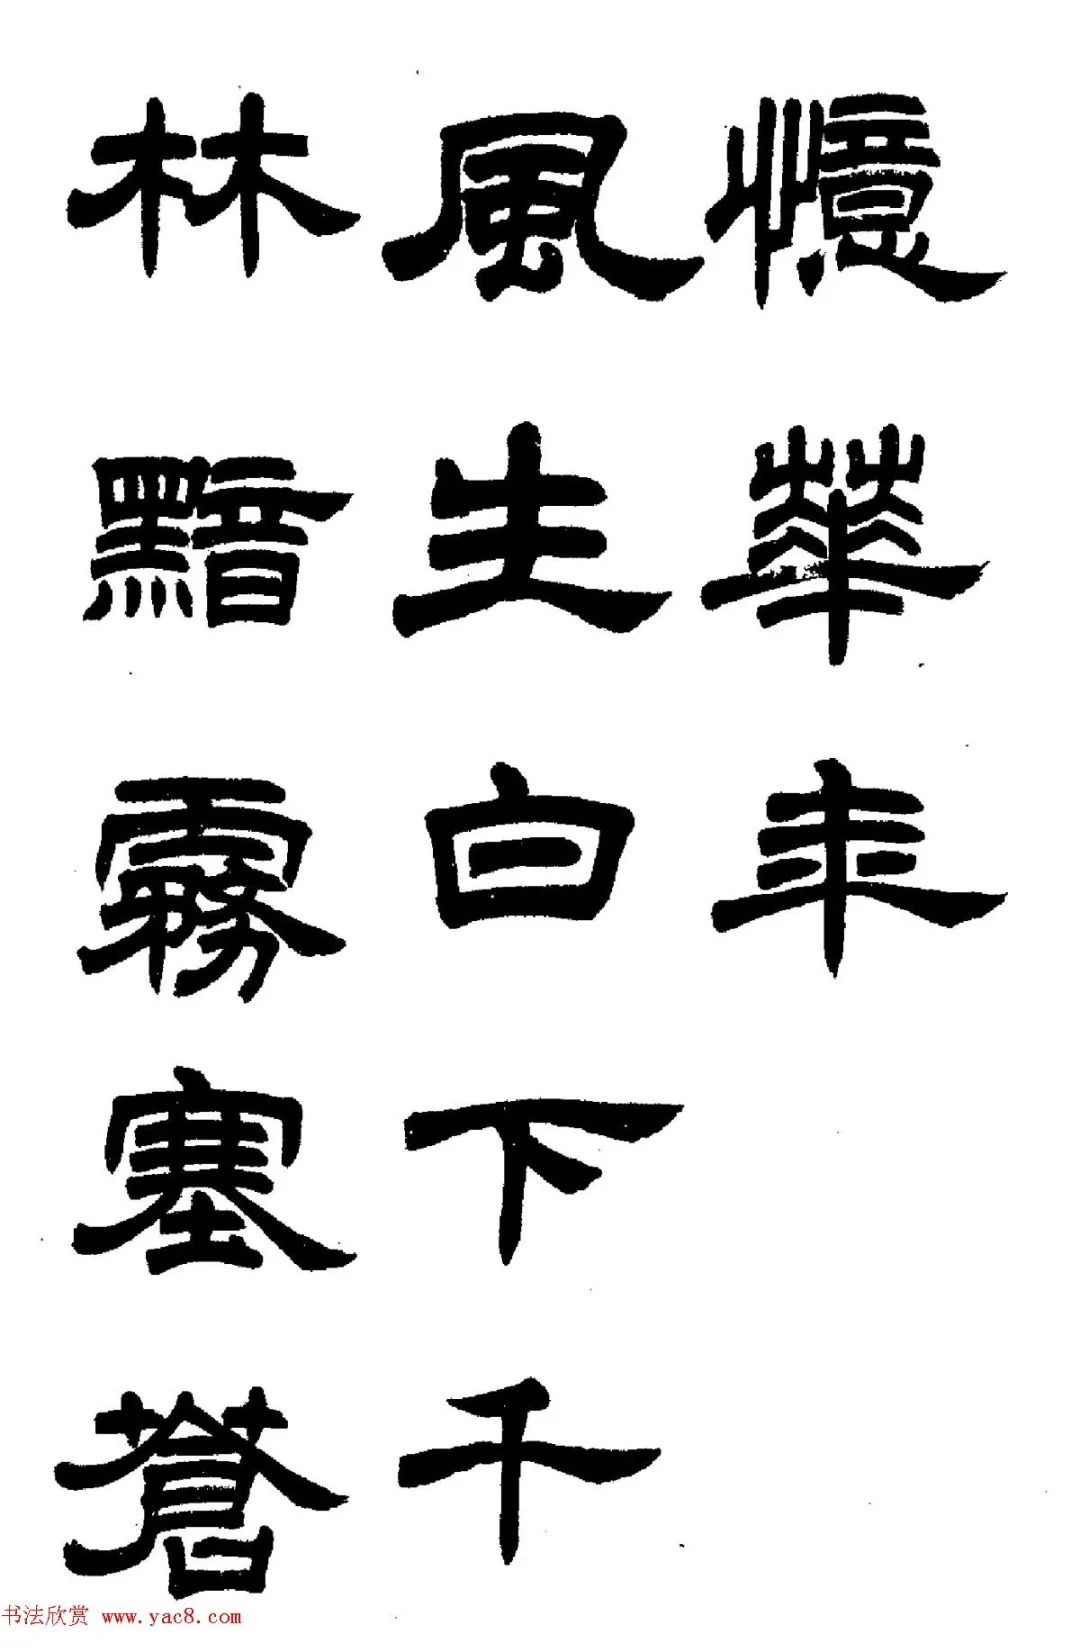 憶華年
風生白下千
林黯霧塞蒼
书法欣赏 www.yac8.com